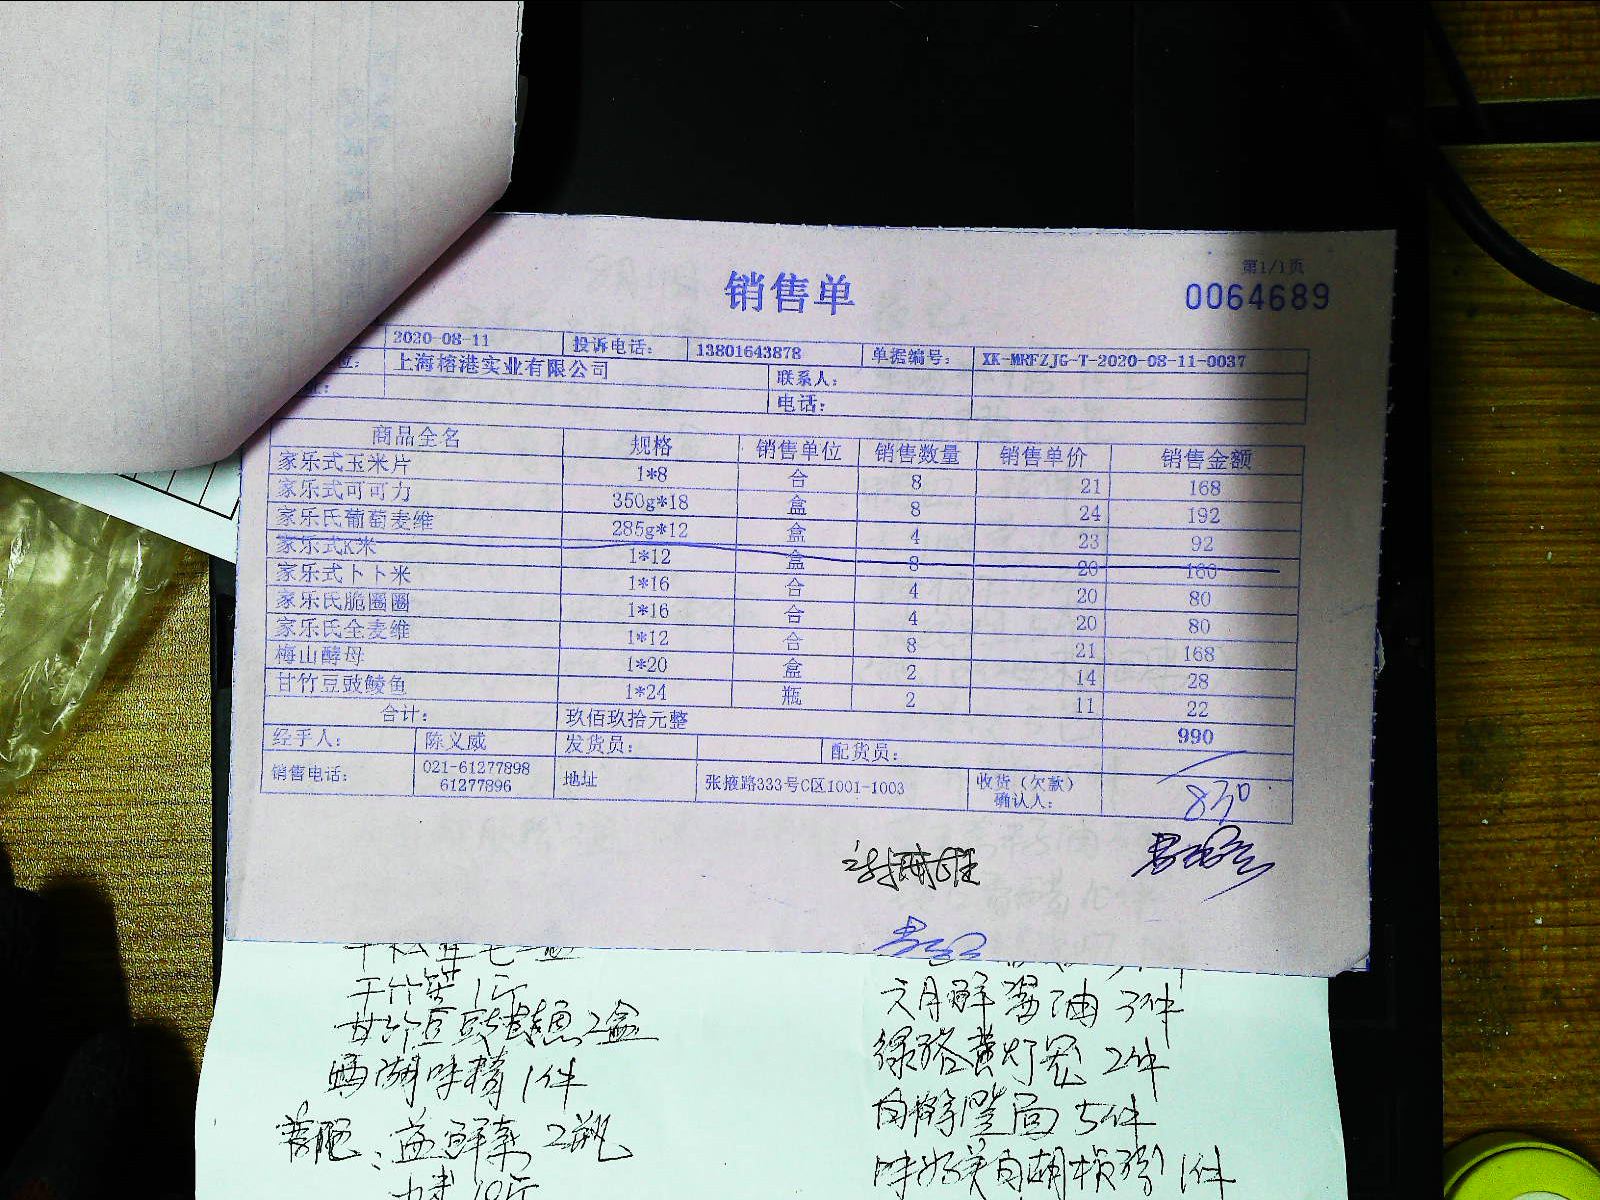 销售单
第1/1页
0064689
2020-08-11 投诉电话: 13801643878 单据编号: XK-MRFZJG-T-2020-08-11-0037
位: 上海榕港实业有限公司 联系人:
: 电话:
商品全名 规格 销售单位 销售数量 销售单价 销售金额
家乐式玉米片 1*8 合 8 21 168
家乐式可可力 350g*18 盒 8 24 192
家乐氏葡萄麦维 285g*12 盒 4 23 92
家乐式K米 1*12 盒 8 20 160
家乐式卜卜米 1*16 合 4 20 80
家乐氏脆圈圈 1*16 合 4 20 80
家乐氏全麦维 1*12 合 8 21 168
梅山酵母 1*20 盒 2 14 28
甘竹豆豉鲮鱼 1*24 瓶 2 11 22
合计: 玖佰玖拾元整 990
经手人: 陈义威 发货员: 配货员:
销售电话: 021-61277898 61277896 地址 张掖路333号C区1001-1003 收货(欠款)确认人: 830
干竹笙 1斤
甘竹豆豉鲮鱼 2盒
西湖味精 1件
益鲜素 2瓶
六月鲜酱油 3件
2件
5件
味好美白胡椒粉 1件